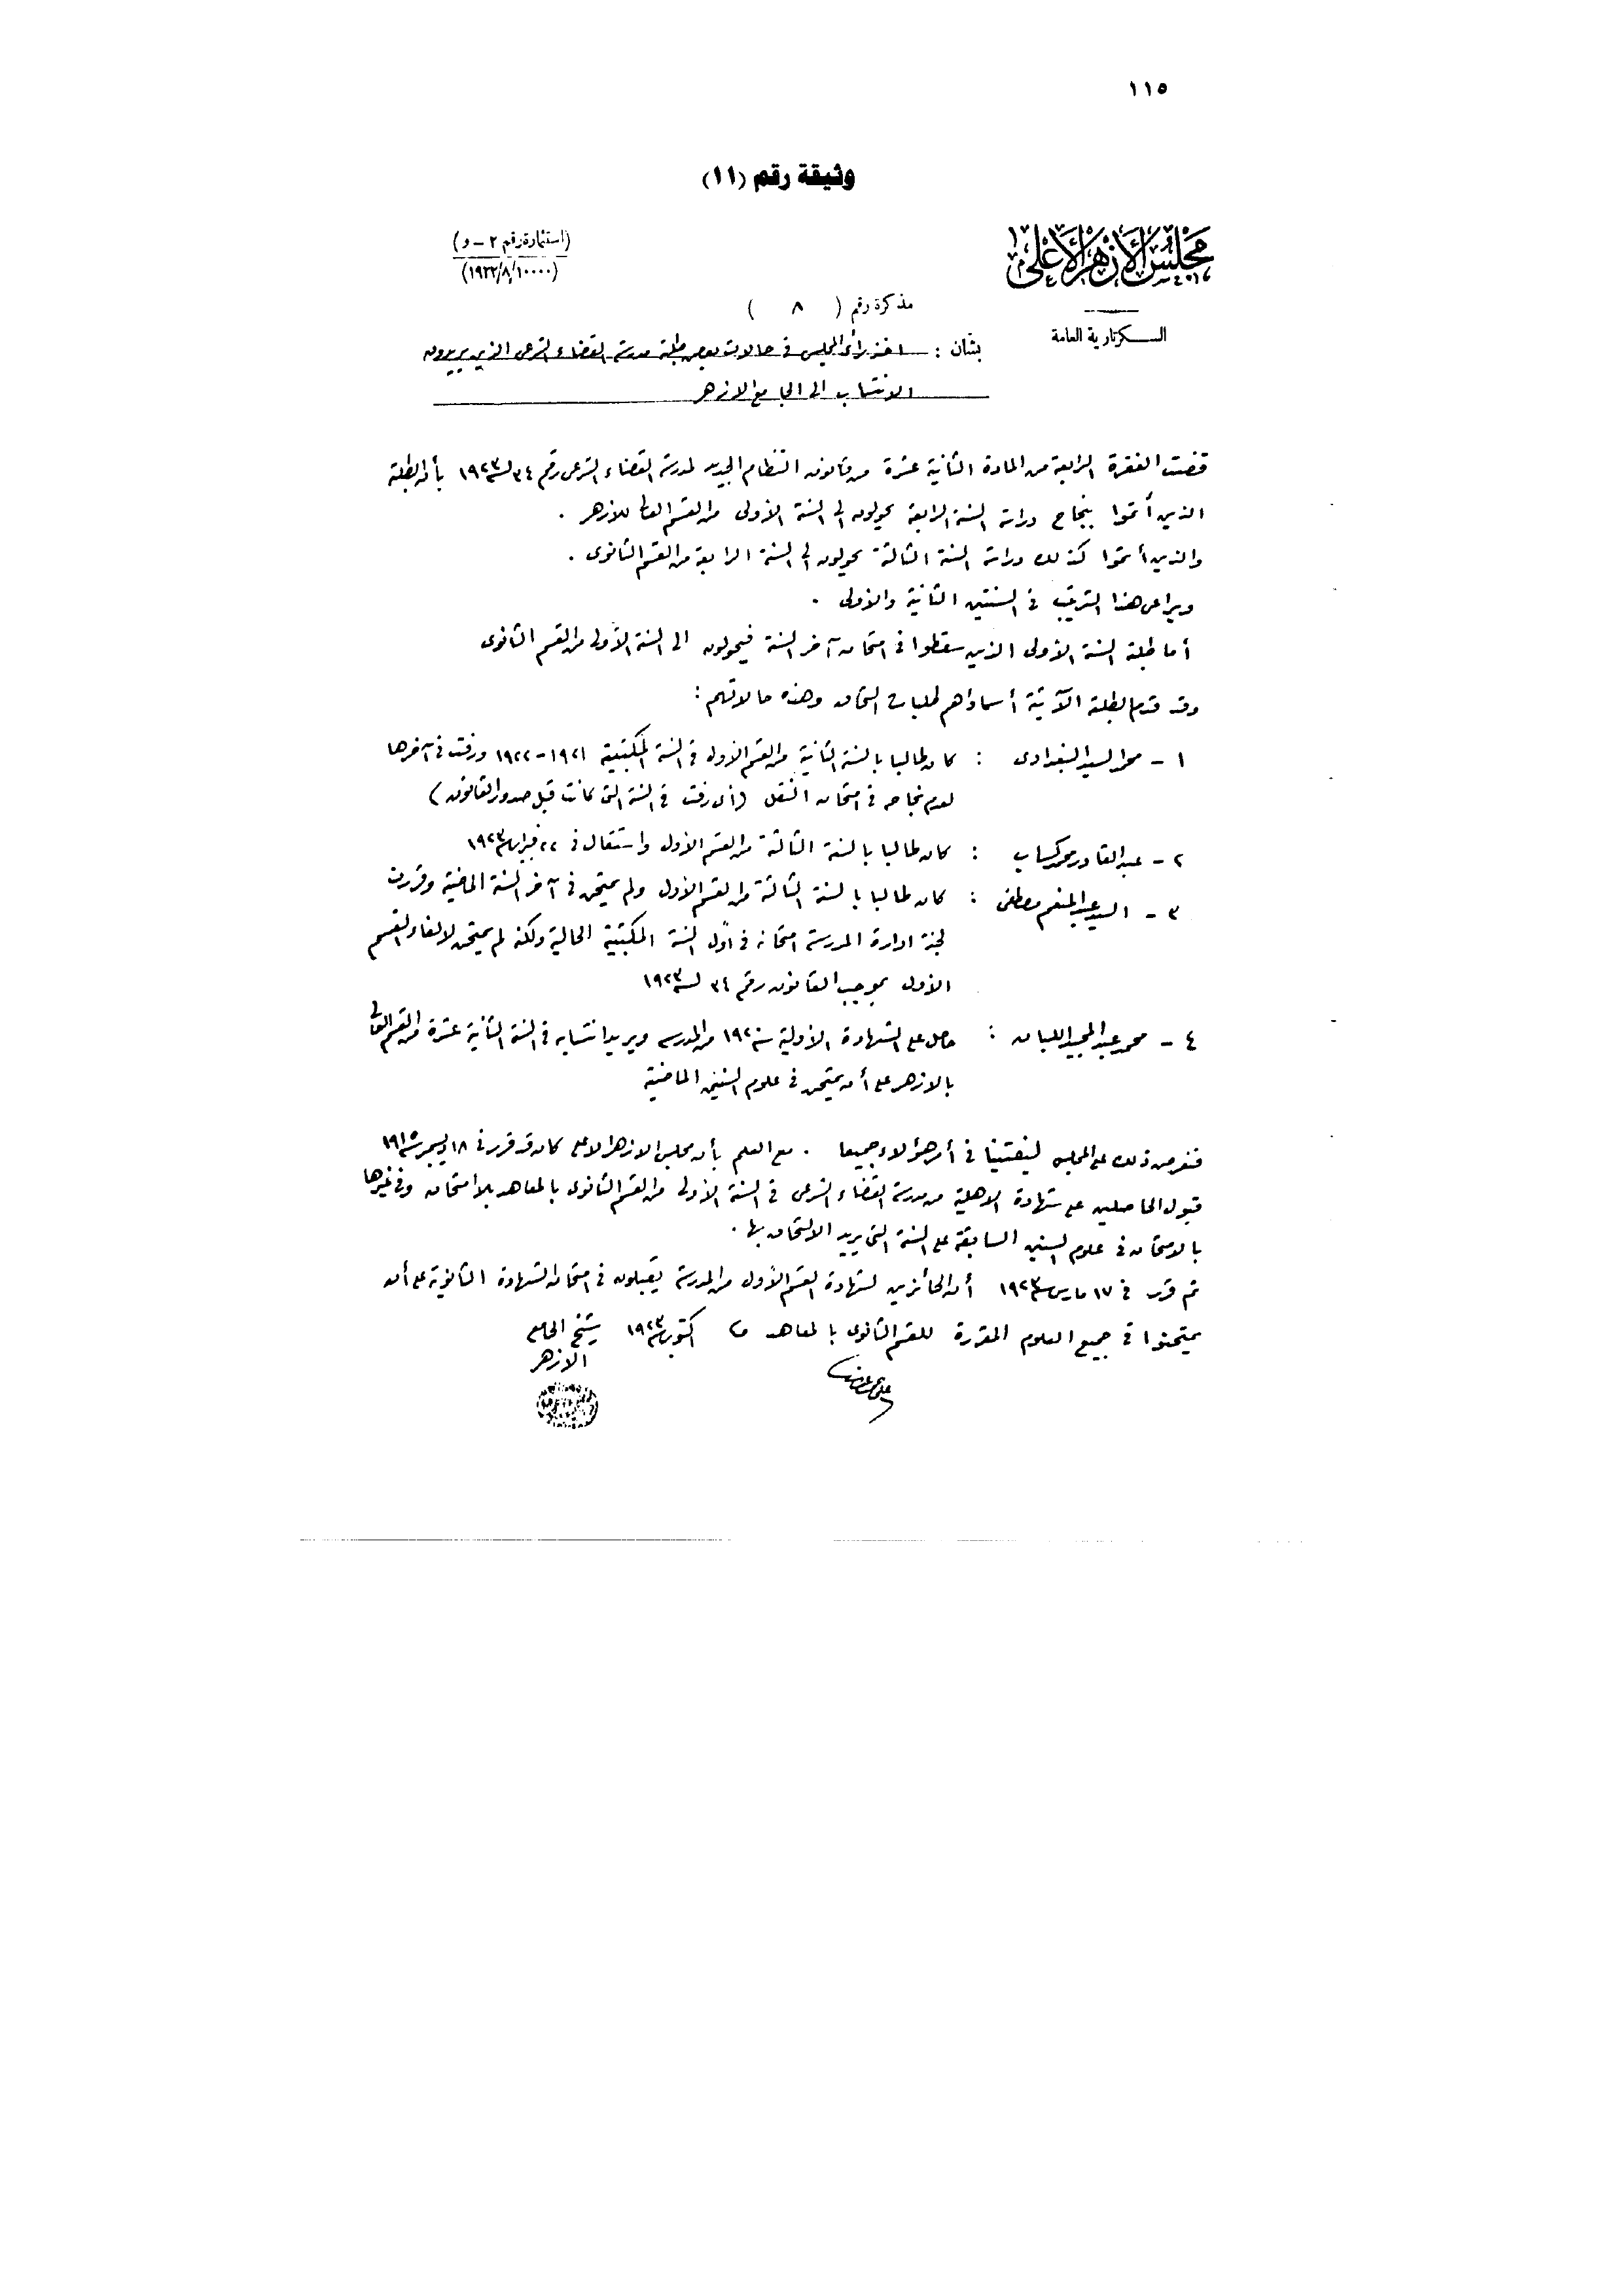 ١١٥
وثيقة رقم (١١)
مجلس الأزهر الأعلى
(استمارة رقم ٢ – و)
(١٩٢٢/٨/١٠٠٠٠)
السكرتارية العامة
مذكرة رقم ( ٨ )
بشأن : اخذ رأى المجلس فى حالات بعض طلبة مدرسة القضاء الشرعى الذين يريدون
الانتساب الى الجامع الازهر
قضت الفقرة الرابعة من المادة الثانية عشرة من قانون النظام الجديد لمدرسة القضاء الشرعى رقم ٣٤ لسنة ١٩٢٣ بأن الطلبة
الذين أتموا بنجاح دراسة السنة الرابعة يحولون الى السنة الأولى من القسم العالى للأزهر .
والذين أتموا كذلك دراسة السنة الثالثة يحولون الى السنة الرابعة من القسم الثانوى .
ويراعى هذا الترتيب فى السنتين الثانية والأولى .
أما طلبة السنة الأولى الذين سقطوا فى امتحان آخر السنة فيحولون الى السنة الأولى من القسم الثانوى
وقد قدم الطلبة الآتية أسماؤهم طلبات التحاق وهذه حالاتهم :
١ - محمد السيد البغدادى : كان طالبا بالسنة الثانية من القسم الأول فى السنة المكتبية ١٩٢١-١٩٢٢ ورفت فى آخرها
لعدم نجاحه فى امتحان النقل (أى رفت فى السنة التى كانت قبل صدور القانون)
٢ - عبد القادر محمد كساب : كان طالبا بالسنة الثالثة من القسم الأول واستقال فى ٢٢ فبراير سنة ١٩٢٣
٣ - السيد عبد المنعم مصطفى : كان طالبا بالسنة الثالثة من القسم الأول ولم يمتحن فى آخر السنة الماضية وقررت
لجنة ادارة المدرسة امتحانه فى أول السنة المكتبية الحالية ولكنه لم يمتحن لالغاء القسم
الأول بموجب القانون رقم ٣٤ لسنة ١٩٢٣
٤ - محمد عبد المجيد اللبان : حاصل على الشهادة الأولية سنة ١٩٢٠ من المدرسة ويريد انتسابه فى السنة الثانية عشرة من القسم العالى
بالازهر على أن يمتحن فى علوم السنين الماضية
فنعرض ذلك على المجلس ليفتينا فى أمر هؤلاء جميعا . مع العلم بأن مجلس الازهر الاعلى كان قد قرر فى ١٨ ديسمبر سنة ١٩١٥
قبول الحاصلين على شهادة الاهلية من مدرسة القضاء الشرعى فى السنة الأولى من القسم الثانوى بالمعاهد بلا امتحان وفى غيرها
بالامتحان فى علوم السنين السابقة على السنة التى يريد الالتحاق بها .
ثم قرر فى ١٧ مارس سنة ١٩٢٣ أن الحائزين لشهادة القسم الأول من المدرسة يقبلون فى امتحان الشهادة الثانوية على أن
يمتحنوا فى جميع العلوم المقررة للقسم الثانوى بالمعاهد اكتوبر سنة ١٩٢٣ شيخ الجامع
الازهر